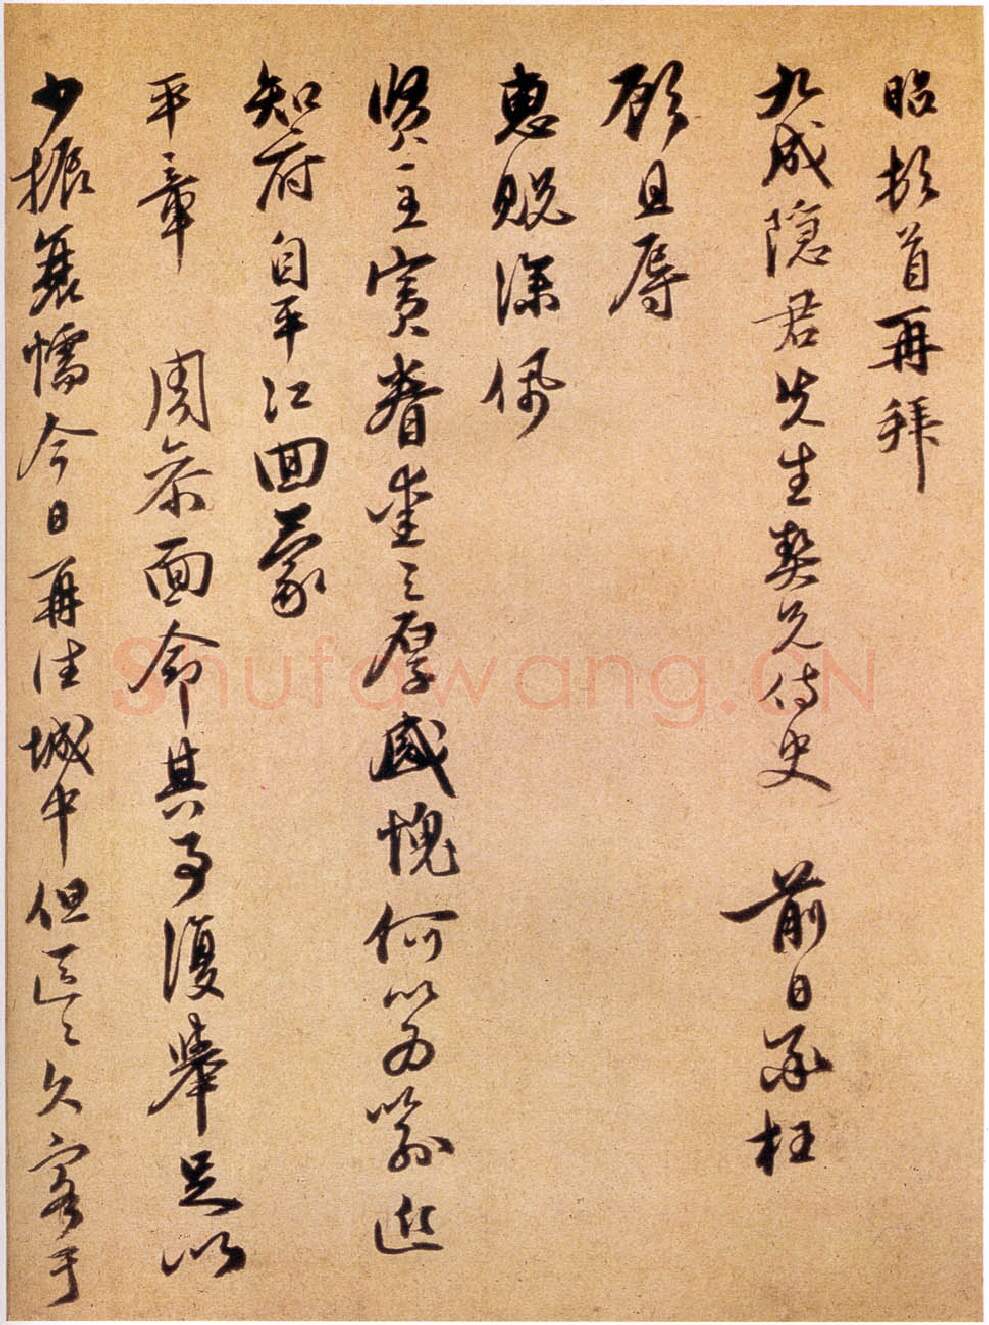 昭頓首再拜
九成隱君先生契兄侍史 前日承枉
顧且辱
惠貺深佩
賢主賓眷愛之厚感愧何以為喻近
知府自平江回蒙
平章 周參面命其事復舉足以
少振襄懦今日再往城中但區區久客于
Shufawang.CN